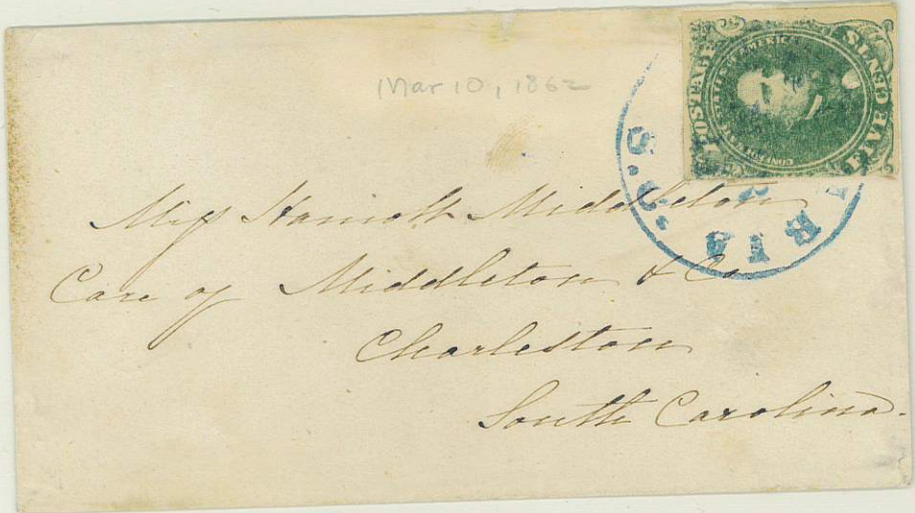 Mar 10, 1862
POSTAGE
FIVE CENTS
CONFEDERATE STATES OF AMERICA
BIA
S.C.
Miss Harriott Middleton
Care of Middleton & Co
Charleston
South Carolina.